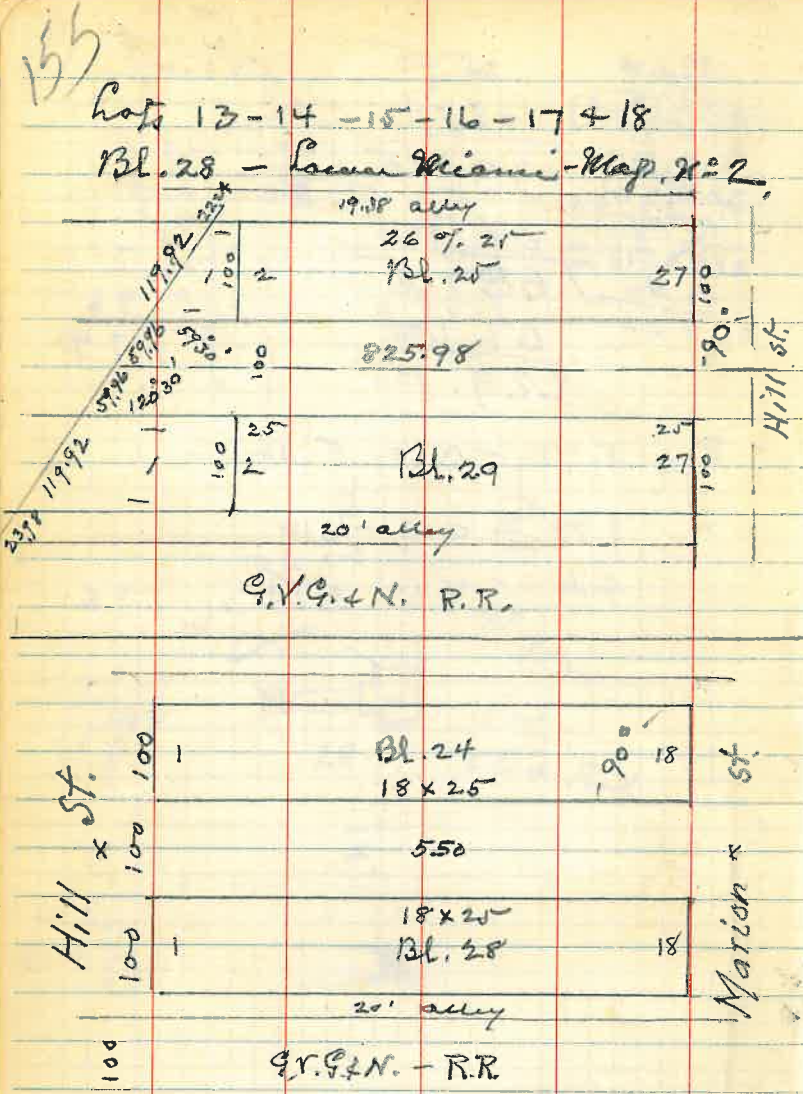 155
Lots 13 - 14 - 15 - 16 - 17 + 18
Bl. 28 - Lower Miami - Map. Nº 2
19.38 alley
119.92
1
100
2
26 % 25
Bl. 25
27
100
1
1
59.96 59.96
59°30'
100
825.98
90°
Hill st.
120°30'
119.92
1
1
1
100
25
2
Bl. 29
25
27
100
23.98
20' alley
G.V.G. & N. R.R.
Hill x St.
100
1
Bl. 24
18 x 25
90°
18
100
550
100
1
18 x 25
Bl. 28
18
Marion x St.
20' alley
100
G.V.G & N. - R.R